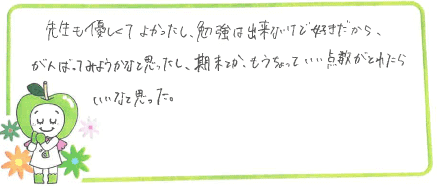 先生も優しくてよかったし、勉強は出来ないけど好きだから、
がんばってみようかなと思ったし、期末とか、もうちょっといい点数がとれたら
いいなと思った。